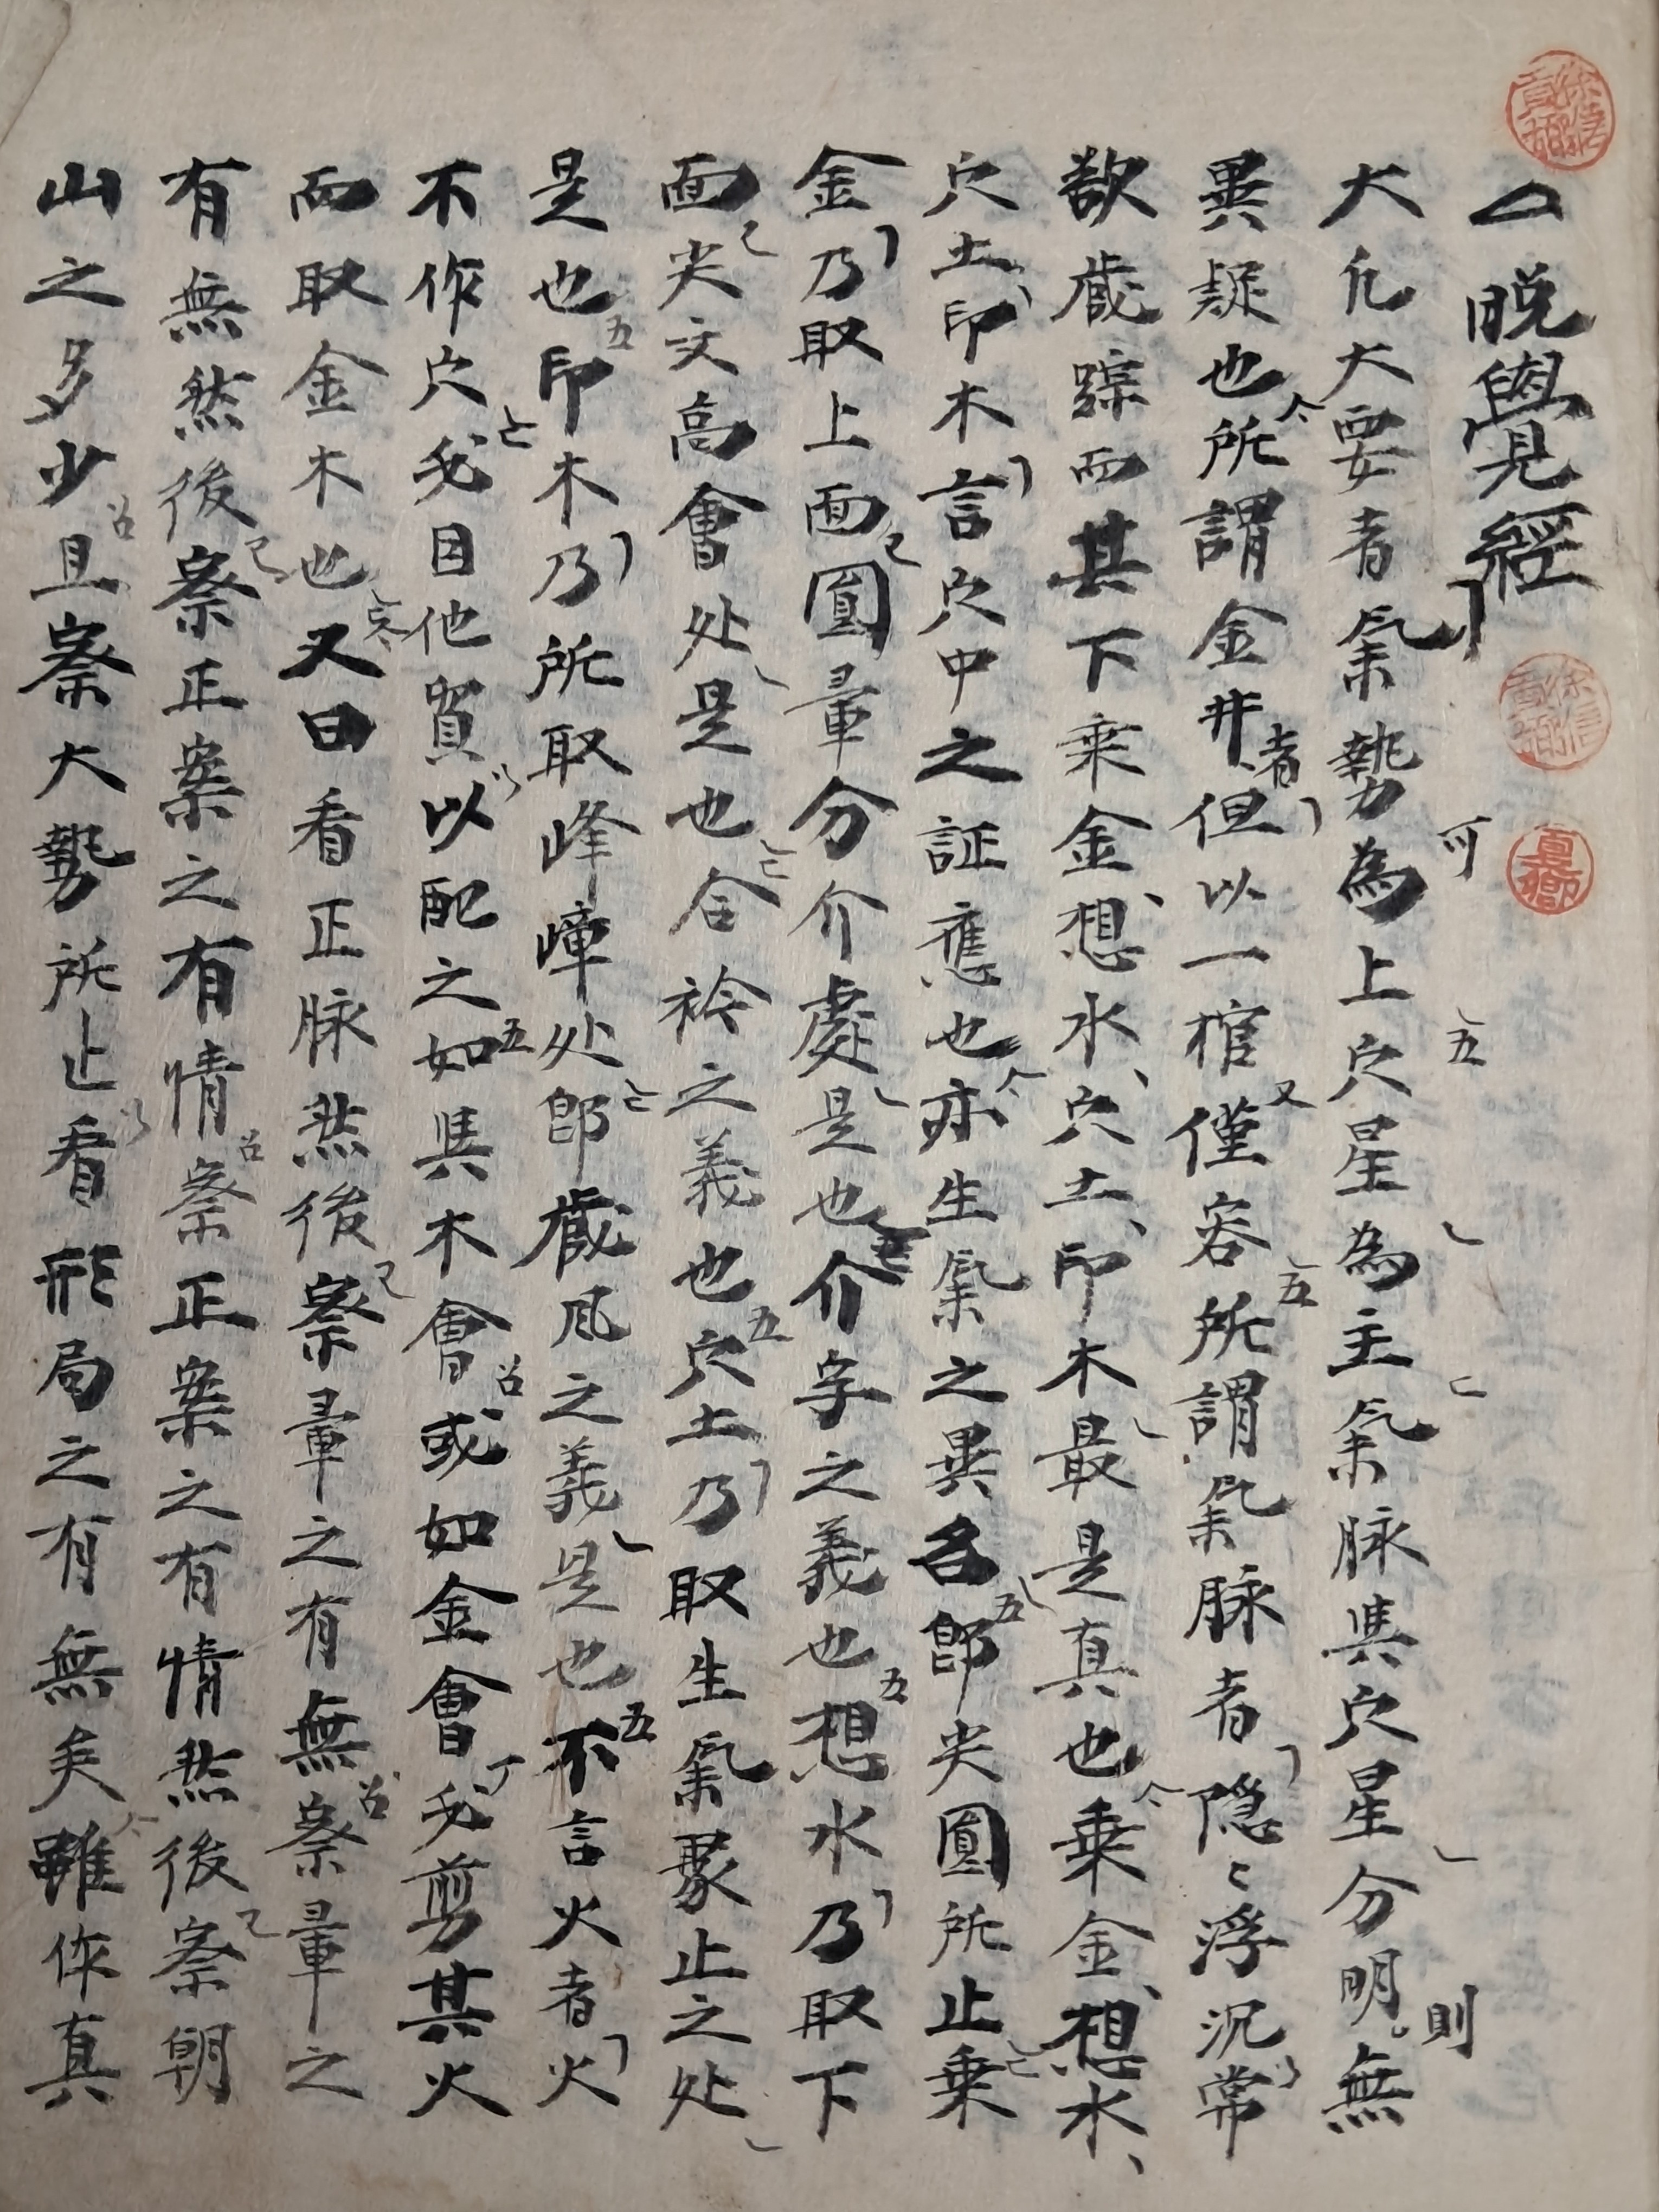 晩覺經
大凡大要者氣勢為上穴星為主氣脉與穴星分明則無
異疑也所謂金井者但以一棺僅容所謂氣脉者隐〻浮沉常
欲蔵踪而其下乘金想水穴土印木最是真也乘金想水
穴土印木言穴中之証應也亦生氣之異名即尖圓所止乗
金乃取上面圓暈分介處是也介字之義也想水乃取下
面尖文高會处是也合衿之義也穴土乃取生氣聚止之处
是也印木乃所取峰嶂处即蔵风之義是也不言火者火
不作穴必因他質以配之如與木會或如金會必剪其火
而取金木也又曰看正脉然後察暈之有無察暈之
有無然後察正案之有情察正案之有情然後察朝
山之多少且察大勢所止看形局之有無矣雖作真